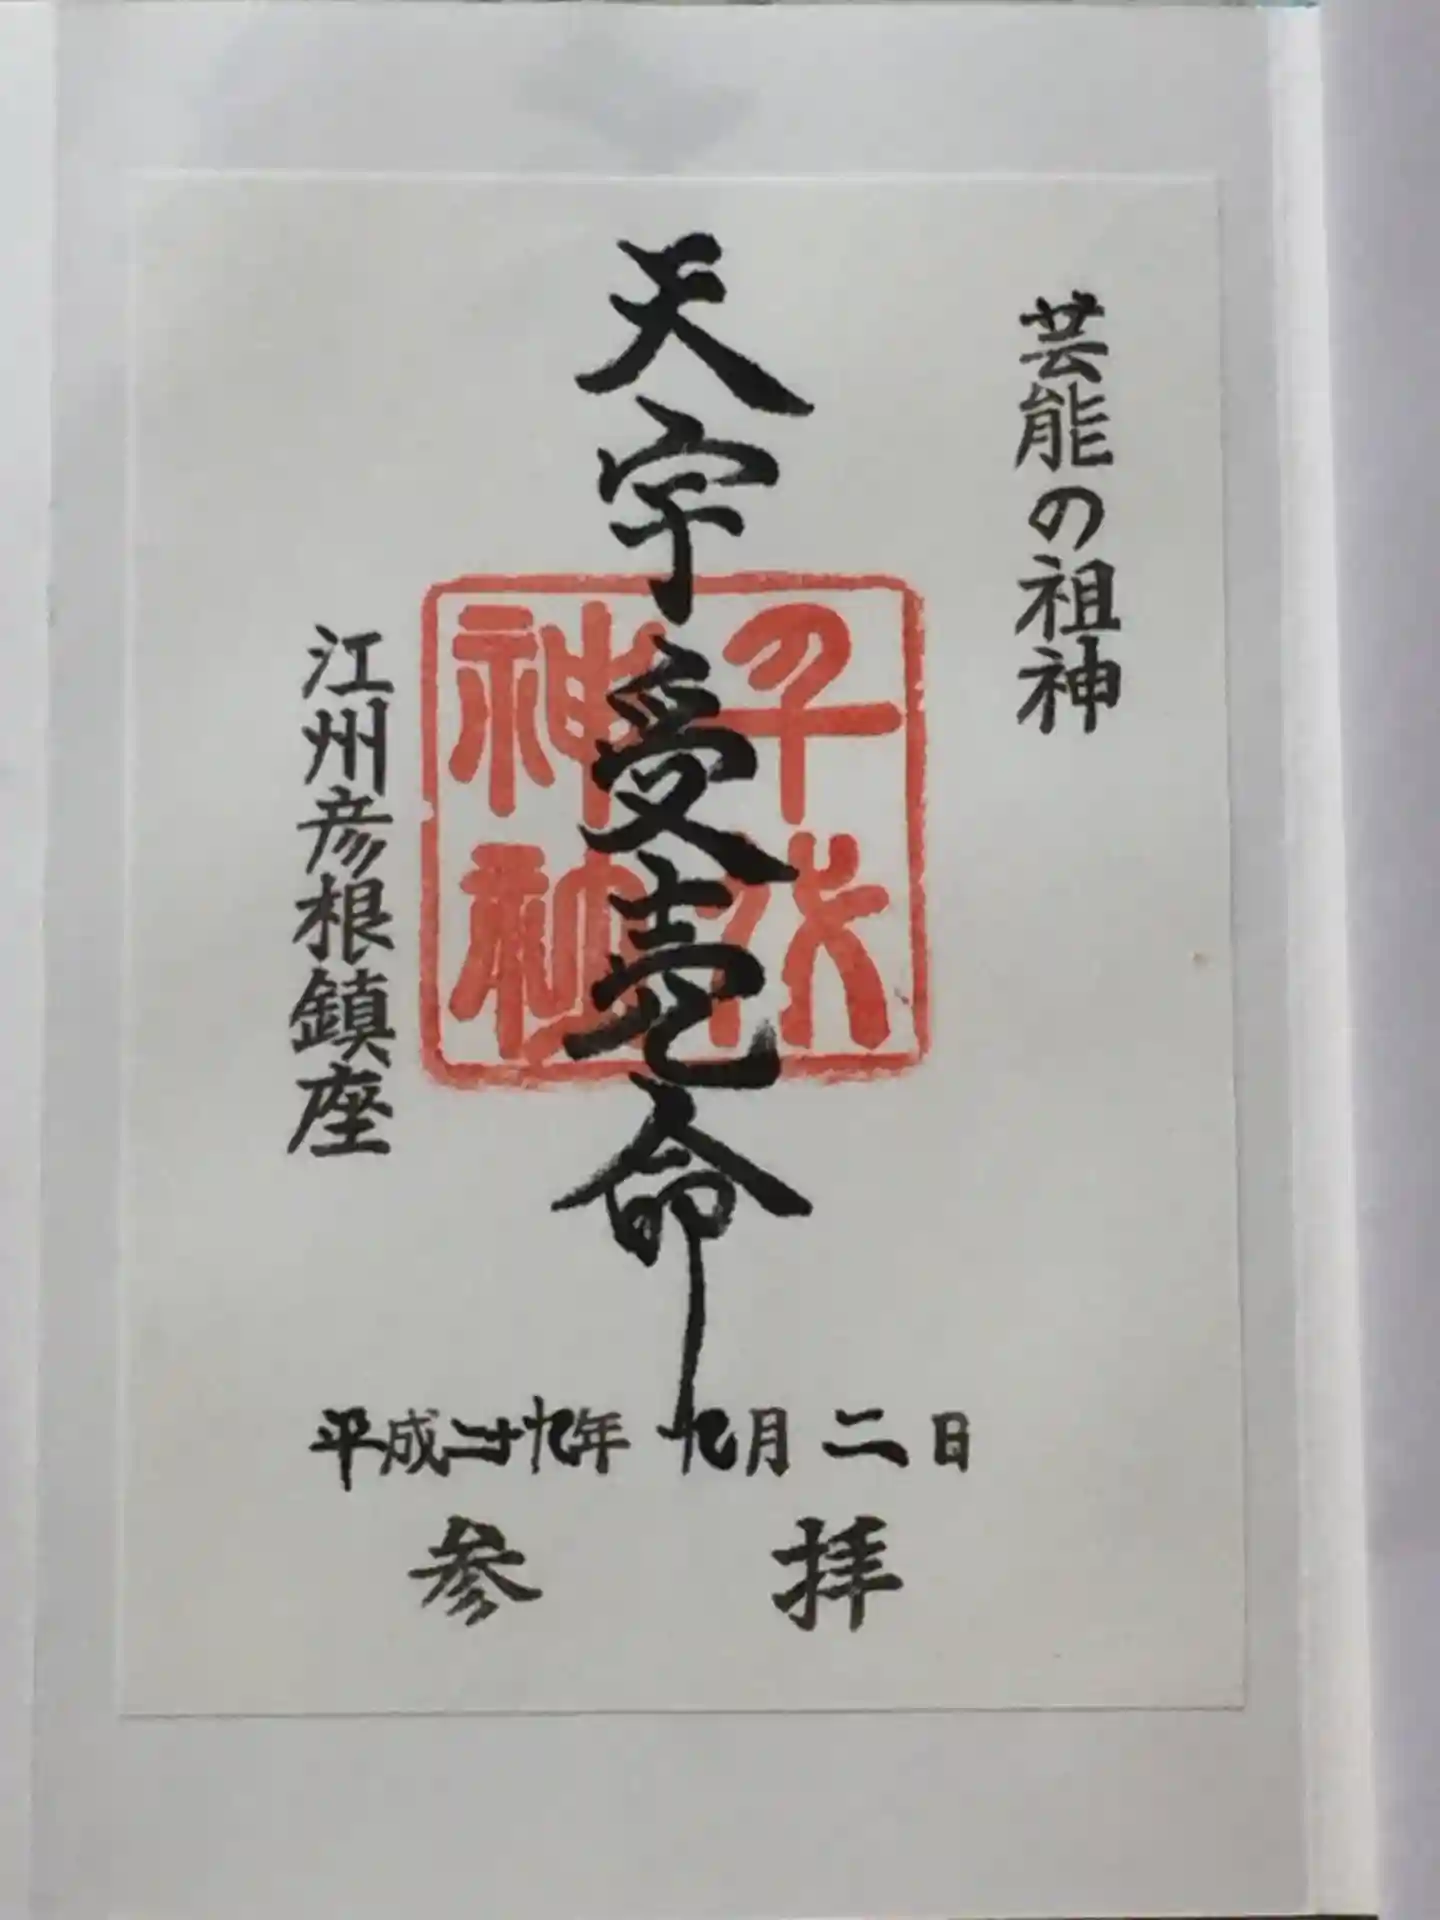 芸能の祖神
天宇受売命
千代
神社
江州彦根鎮座
平成二十九年 九月 二 日
参 拝